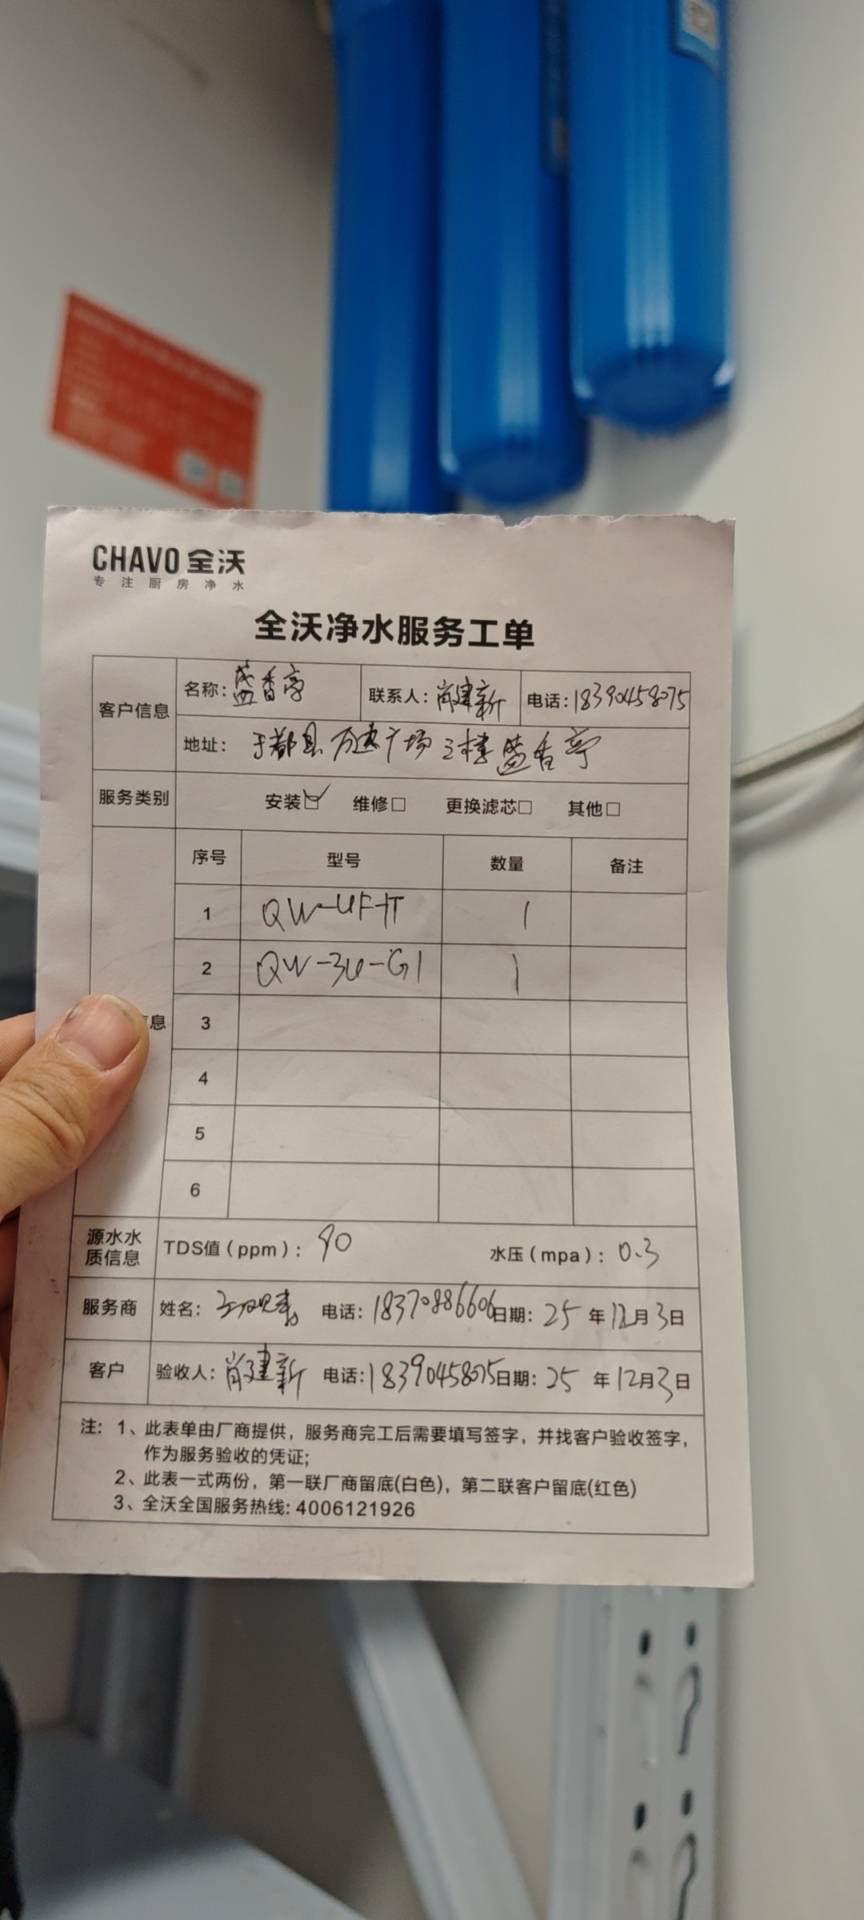 CHAVO 全沃
专注厨房净水
全沃净水服务工单
客户信息 名称: 盛香亭 联系人: 肖建新 电话: 18390458075
地址: 于都县万达广场三楼盛香亭
服务类别 安装☑ 维修□ 更换滤芯□ 其他□
序号 型号 数量 备注
1 QW-UF-1T 1
2 QW-3U-G1 1
息 3
4
5
6
源水水质信息 TDS值(ppm): 90 水压(mpa): 0.3
服务商 姓名: 电话: 18370886606 日期: 25年12月3日
客户 验收人: 肖建新 电话: 18390458075 日期: 25年12月3日
注: 1、此表单由厂商提供，服务商完工后需要填写签字，并找客户验收签字，
作为服务验收的凭证;
2、此表一式两份，第一联厂商留底(白色)，第二联客户留底(红色)
3、全沃全国服务热线: 4006121926